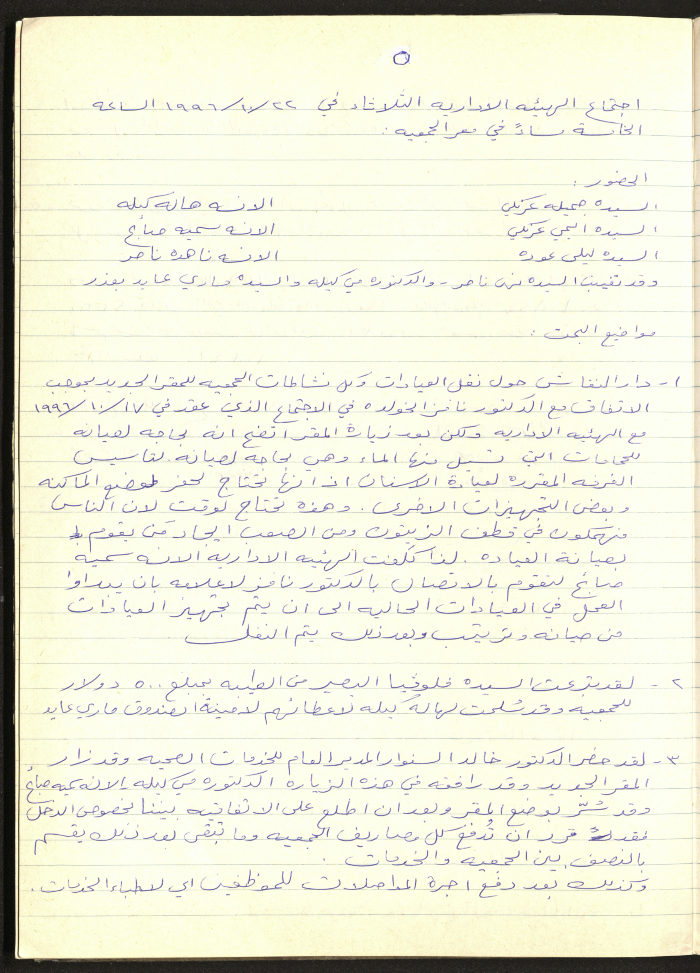 ٥
اجتماع الهيئه الاداريه الثلاثاء في ٢٢/١٠/١٩٩٦ الساعه
الخامسة مساءً في مقر الجمعيه :
الحضور :
السيده جميله غزنلي الانسه هاله كيله
السيده اليمي غزنلي الانسه سميه صايغ
السيده ليلى عوده الانسه ناهده ناصر
وقد تغيبت السيده نهى ناصر - والدكتوره مي كيله والسيده ماري عايد بعذر
مواضيع البحث :
١- دار النقاش حول نقل العيادات وكل نشاطات الجمعيه للمقر الجديد بموجب
الاتفاق مع الدكتور نافز الخولده في الاجتماع الذي عقد في ١٧/١٠/١٩٩٦
مع الهيئه الاداريه ولكن بعد زيارة المقر اتضح انه بحاجه لصيانه
للحمامات التي تسيل منها الماء وهي بحاجه لصيانه لقاسيس
الغرفه المقرره لعيادة الاسنان اذ انها تحتاج لحفر لوضع الماكنه
وبعض التجهيزات الاخرى . وهذه تحتاج لوقت لان الناس
منهمكون في قطف الزيتون ومن الصعب ايجاد مَن يقوم
بصيانة العياده . لذا كلّفت الهيئه الاداريه الانسه سميه
صايغ لتقوم بالاتصال بالدكتور نافز لاعلامه بان يبدأوا
العمل في العيادات الحاليه الى ان يتم تجهيز العيادات
من صيانه وترتيب وبعد ذلك يتم النقل
٢ - لقد تبرعت السيده فلوفيا البصير من الطيبه بمبلغ ٥٠٠ دولار
للجمعيه وقد سُلمت لهاله كيله لاعطائهم لامينة الصندوق ماري عايد
٣- لقد حضر الدكتور خالد السنوار المدير العام للخدمات الصحيه وقد زار
المقر الجديد وقد رافقه في هذه الزياره الدكتوره مي كيله - الانسه سميه صايغ
وقد سُرّ بوضع المقر وبعد ان اطلع على الاتفاقيه بيننا بخصوص الدخل
فقد قرر ان تُدفع كل مصاريف الجمعيه وما تبقى بعد ذلك يقسم
بالنصف بين الجمعيه والخدمات .
وكذلك بعد دفع اجرة المواصلات للموظفين اي لاطباء الخدمات .